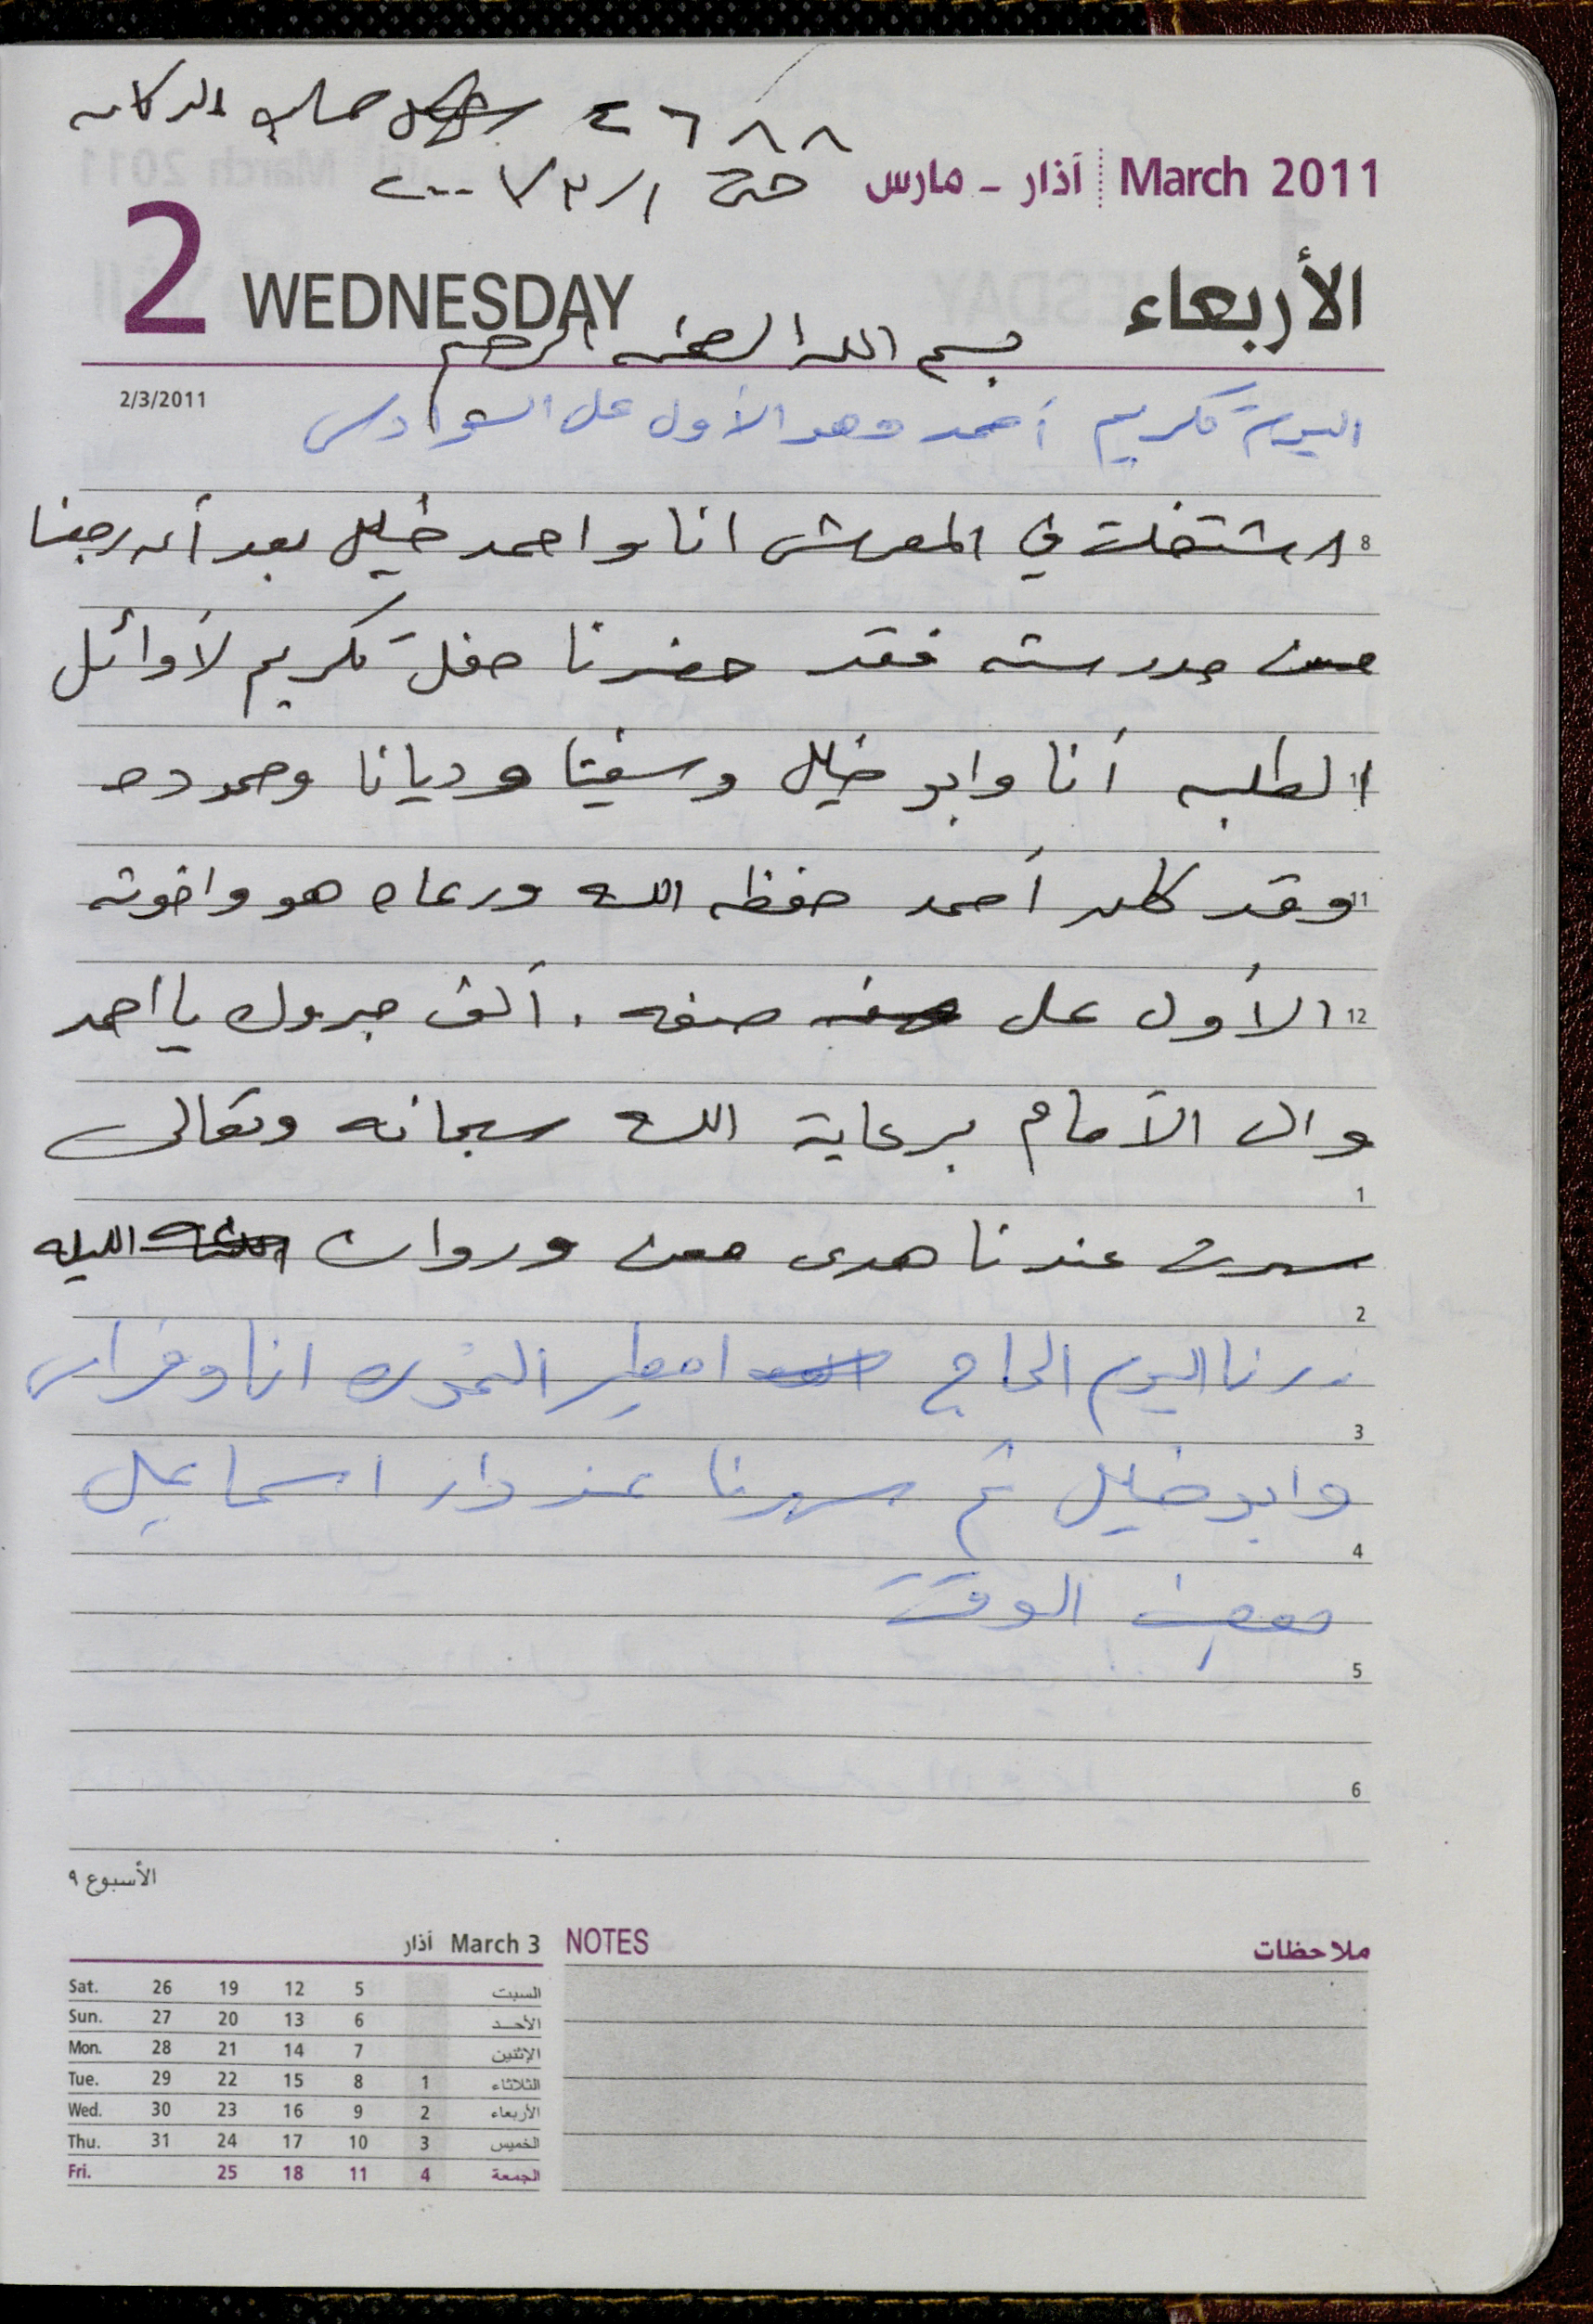 ٤٦٨٨ حساب الدكانه
حتى ٢٠٠٧/٣/١
March 2011 آذار - مارس
2 WEDNESDAY الأربعاء
بسم الله الرحمن الرحيم
2/3/2011
اليوم تكريم أحمد وهو الأول على السوادس
8 اشتغلت في المعرش انا واحمد خليل بعد أن رجعنا
من مدرسته فقد حضرنا حفل تكريم لأوائل
الطلبه أنا وابو خليل و وديانا وحموده
11 وقد كان أحمد حفظه الله ورعاه هو واخوته
12 الأول على صفه . ألف مبروك يا أحمد
والى الأمام برعاية الله سبحانه وتعالى
1
سهرت عندنا هدى معن وروان الليله
2
زرنا اليوم الحاج انا وفراس
3
وابو خليل ثم سهرنا عند دار اسماعيل
4
بعض الوقت
5
6
الأسبوع ٩
آذار March 3
Sat. 26 19 12 5 السبت
Sun. 27 20 13 6 الأحد
Mon. 28 21 14 7 الإثنين
Tue. 29 22 15 8 1 الثلاثاء
Wed. 30 23 16 9 2 الأربعاء
Thu. 31 24 17 10 3 الخميس
Fri. 25 18 11 4 الجمعة
NOTES ملاحظات